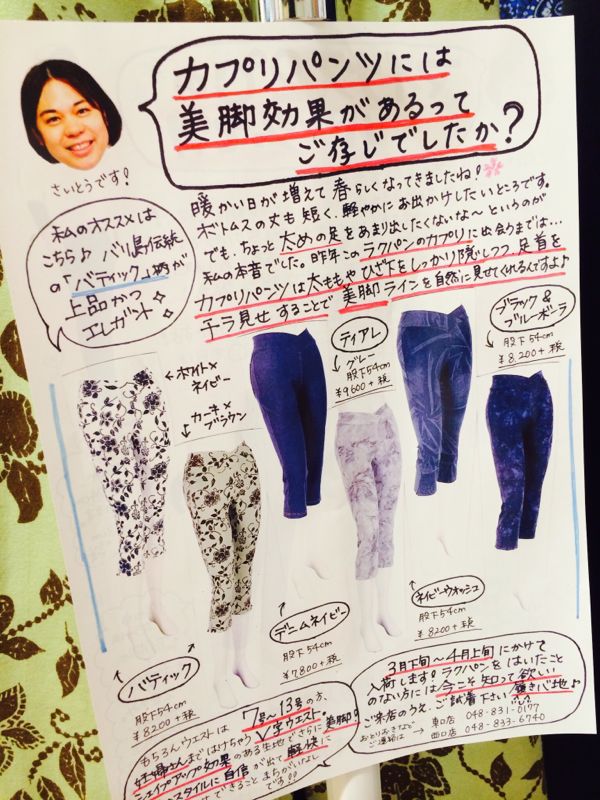 カプリパンツには
美脚効果があるって
ご存じでしたか?
さいとうです!
暖かい日が増えて春らしくなってきましたね!
ボトムスの丈も短く、軽やかにお出かけしたいところです。
でも、ちょっと太めの足をあまり出したくないな〜というのが
私の本音でした。昨年このラクパンのカプリに出会うまでは…
カプリパンツは太ももやひざ下をしっかり隠しつつ、足首を
チラ見せすることで美脚ラインを自然に見せてくれるんですよ♪
私のオススメは
こちら♪バリ島伝統
の「バティック」柄が
上品かつ
エレガント
←ホワイト×
ネイビー
カーキ×
ブラウン
ティアレ
グレー
股下54cm
¥9600+税
ブラック&
ブルーボーラ
股下54cm
¥8,200+税
バティック
股下54cm
¥8200+税
デニムネイビー
股下54cm
¥7800+税
ネイビーウォッシュ
股下54cm
¥8200+税
もちろんウエストは7号〜13号の方、
妊婦さんまではけちゃうV字ウエスト。
シェイプアップ効果のある生地でさらに美脚!
スタイルに自信が出て軽快に
できることまちがいなし
です!!
3月下旬〜4月上旬にかけて
入荷します!ラクパンをはいたこと
のない方には今こそ知って欲しい
ご来店のうえ、ご試着下さい履きバ地♪
おとりおきなど
ご連絡は→
東口店 048-831-0177
西口店 048-833-6740